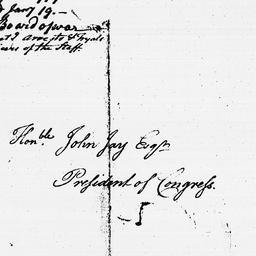 Jany 19.—
Board of war
of the Staff.
Honble John Jay Esqr
President of Congress.